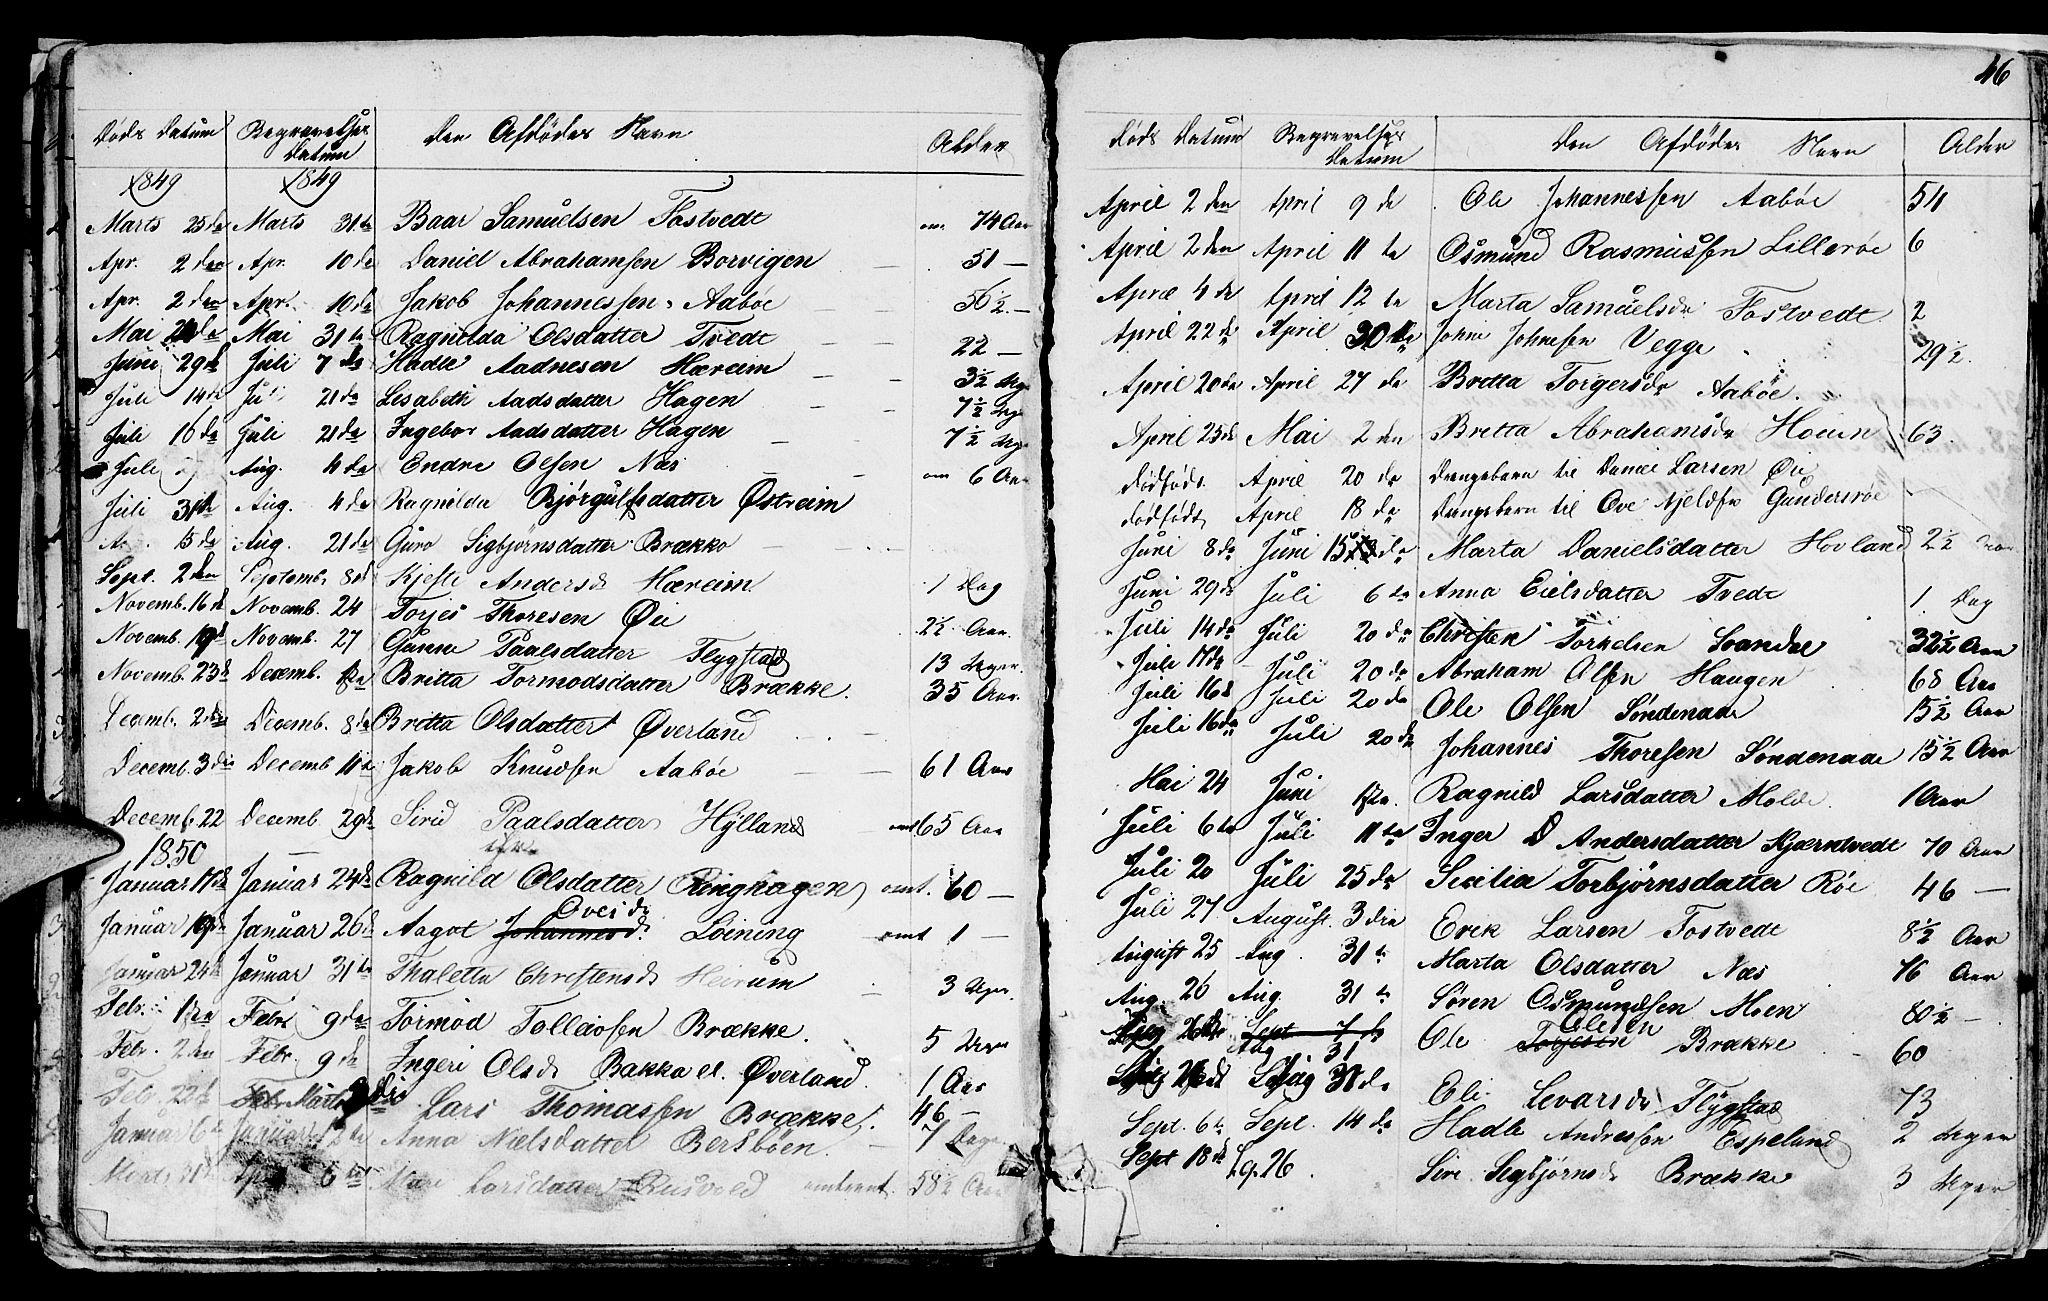 Døds Datum Begravelses Datum Den Afdødes Navn Alder
1849 1849
Marts 25de Marts 31te Baar Samuelsen Tostvedt om. 74 Aar
Apr. 2den Apr. 10de Daniel Abrahamsen Borvigen 51 —
Apr. 2den Apr. 10de Jakob Johannessen Aabøe 56½ —
Mai Mai 31te Ragnilda Olsdatter Tvedt 22 —
Juni 29de Juli 7de Hadle Aadnesen Hæreim 3½ Uger
Juli 14de Juli 21de Lisabeth Aadsdatter Hagen 7½ Uge
Juli 16de Juli 21de Ingebor Aadsdatter Hagen 7½ Uger
Juli Aug. 4de Endre Olsen Næs om 6 Aar
Juli 31te Aug. 4de Ragnilda Bjørgulfsdatter Østreim
15de Aug. 21de Guro Sigbjørnsdatter Brække
Sept. 2den Septemb. 8de Kjesti Andersd Hæreim 1 Dag
Novemb. 16de Novemb. 24 Torjes Thoresen Øie 2½ Aar
Novemb. 19de Novemb. 27 Gunna Paalsdatter Flygstad 13 Uger
Novemb. 23de Decemb. 1te Britta Tormodsdatter Brække. 35 Aar
Decemb. 2den Decemb. 8de Britta Olsdatter Øverland
Decemb. 3die Decemb 11te Jakob Knudsen Aabøe 61 Aar
Decemb. 22 Decemb 29de Sirid Paalsdatter Hylland omt 65 Aar
1850
Januar 17de Januar 24de Ragnild Olsdatter Ringhagen omt. 60 —
Oves d.
Januar 19de Januar 26de Aagot Johannesd. Loining omt 1 —
Januar 24de Januar 31te Thaletta Christensd Heirum 3 Uger
Febr. 1te Febr. 9de Tormod Tolleivsen Brække. 5 Uger
Febr. 2den Febr. 9de Ingeri Olsd Bakka el. Øverland. 1 Aar
Febr. 22de Febr. Marts 2die Lars Thomassen Brække. 46 —
Januar 6te Januar Anna Nielsdatter Bersbøen. 7 Dage
Marts 31te Apr. 6te Larsdatter Rusvold omtrent. 58½ Aar
46
Døds Datum Begravelses Datum Den Afdødes Navn Alder
April 2den April 9de Ole Johannessen Aabøe
April 2den April 11te Osmund Rasmussen Lillerøe 6
April 4de April 12te Marta Samuelsdr Tostvedt 2
April 22de April 30te Johne Johnesen Vegge 29½
April 20de April 27de Britta Torgersdr Aabøe.
April 23de Mai 2den Britta Abrahamsdr Hoien 63.
Dødføds. April 20de Drengebarn til Daniel Larsen Øie
Dødfødt April 18de Drengebarn til Ove Njeldsen Gundersrøe
Juni 8de Juni 15de Marta Danielsdatter Hovland 2½ Aar
Juni 29de Juli 6te Anna Eielsdatter Tvedt 1 Dag
Juli 14de Juli 20de Christen Torkelsen Svandal 32½ Aar
Juli 17de Juli 20de Abraham Olsen Haugen 68 Aar
Juli 16de Juli 20de Ole Olsen Søndenaae 15½ Aar
Juli 16de Juli 20de Johannes Thoresen Søndenaae 15½ Aar
Mai 24 Juni 1te Ragnild Larsdatter Molde. 1 Aar
Juli 6te Juli 11te Inger D Andersdatter Kjærntvedt 70 Aar
Juli 20 Juli 25de Secilia Torbjørnsdatter Røe 46 —
Juli 27 August. 3die Erik Larsen Tostvedt 8½ Aar
August 25 Aug. 31te Marta Olsdatter Næs 76 Aar
Aug. 26 Aug. 31te Søren Osmundsen Moen 80½ —
Olesen
Aug 26de Sept 7de Aug 31 Ole Torjesen Brække 60
Aug 31de Eli Levarsdr Flygstad 73
Sept. 6te Sept. 14de Hadle Andressen Espeland 2 Uger
Sept 18de 26. Siri Sigbjørnsd Brække 3 Uger